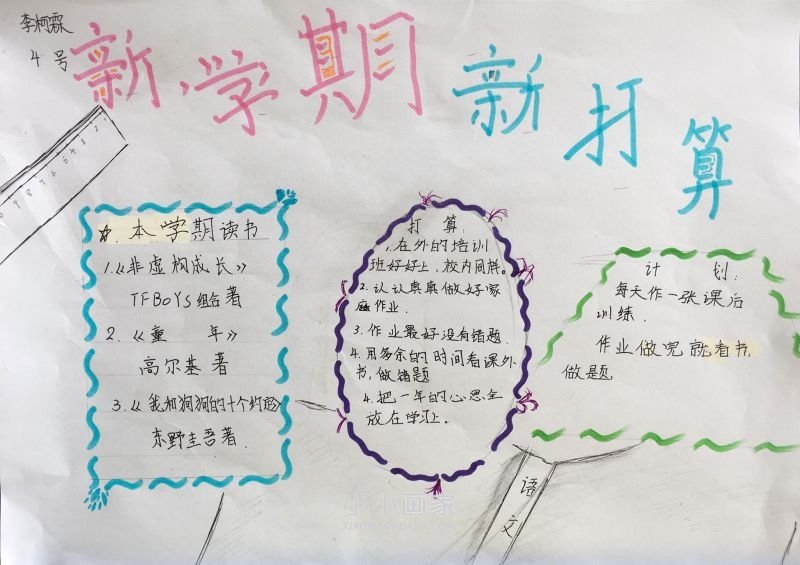 李柯霖
4号
新学期新打算
☆.本学期读书
1.《非虚构成长》
TFBoYS组合著
2.《童 年》
高尔基著
3.《我和狗狗的十个约定》
东野圭吾著
打算:
1.在外的培训
班好好上,校内同样。
2.认认真真做好家
庭作业.
3.作业最好没有错题.
4.用多余的时间看课外
书,做错题
4.把一年的心思全
放在学习上。
计 划:
每天作一张课后
训练.
作业做完就看书,
做题
语文
小小画家
XIAOXIAOHUAJIA.COM